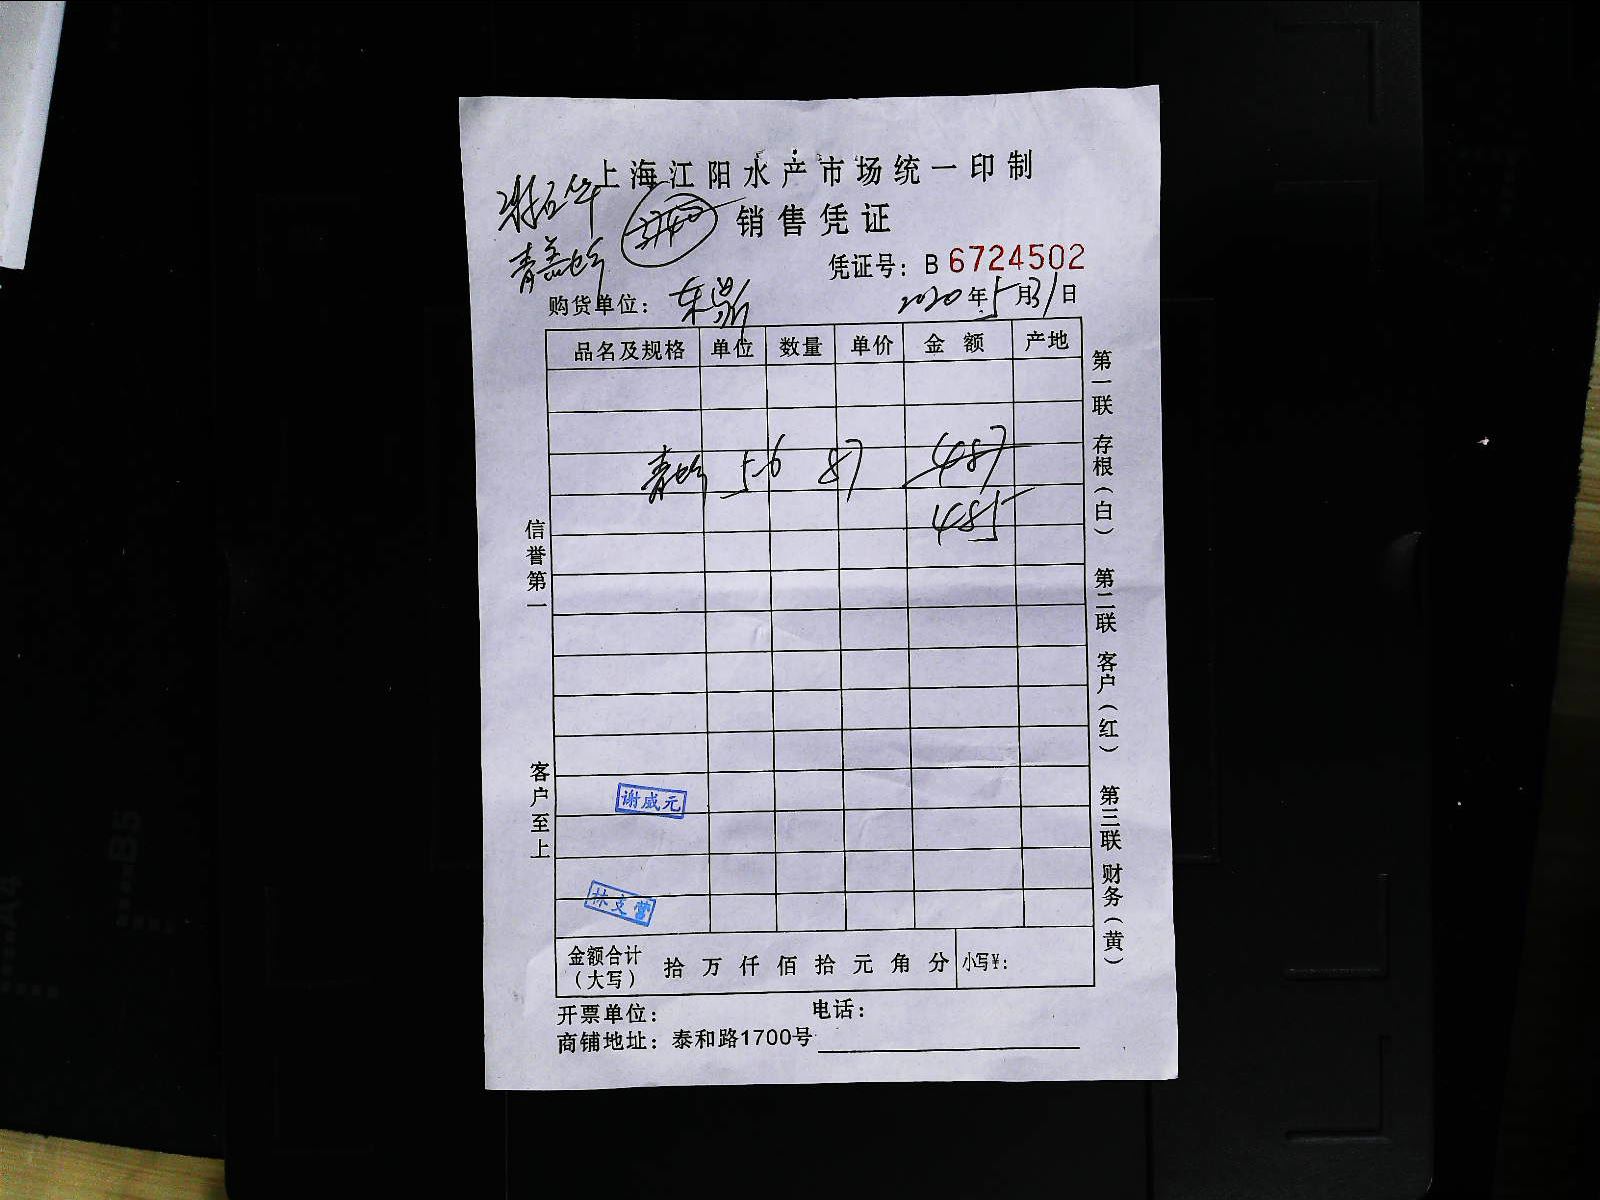 上海江阳水产市场统一印制
销售凭证
凭证号：B 6724502
购货单位：
2020年5月31日
品名及规格 单位 数量 单价 金额 产地
56 87 487
485
信誉第一
客户至上
谢威元
林支营
第一联 存根（白） 第二联 客户（红） 第三联 财务（黄）
金额合计（大写） 拾万仟佰拾元角分 小写¥：
开票单位： 电话：
商铺地址：泰和路1700号
A4
B5